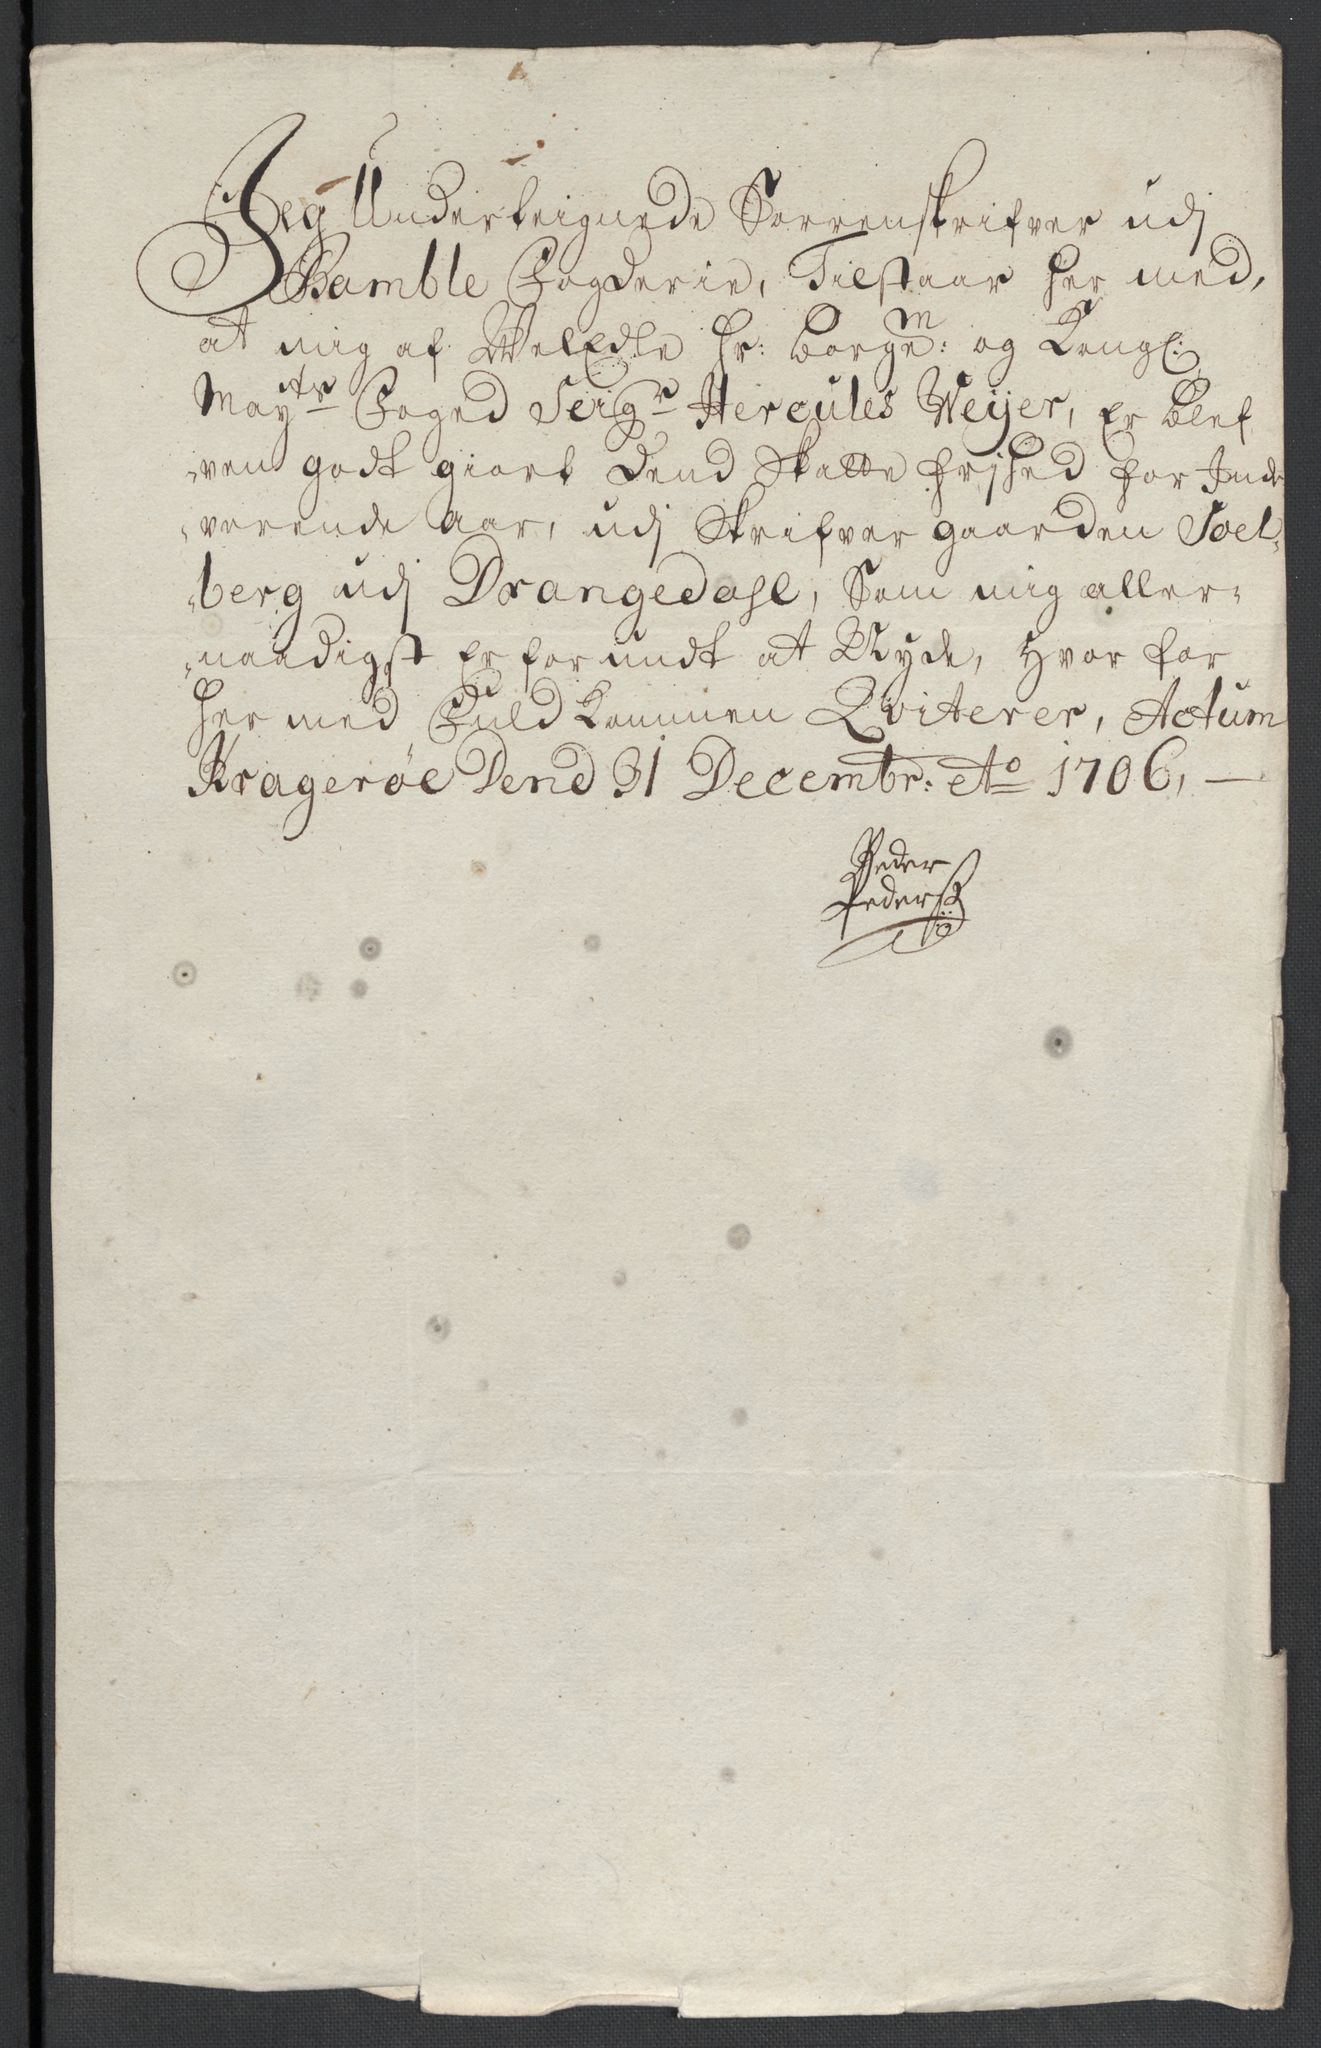 Jeg Underteignede Sorrenskrifver udj
Bamble Fogderie, Tilstaar her med,
at mig af WelEdle Hr: borgem: og Kongl:
Mayts Foged Seigr Hercules Weijer, Er blef
-ven godt giort Dend Skatte frjhed for Inde
-verende aar, udj Skrifver gaarden Soel-
-berg udj Drangedahl, Som mig aller-
-naadigst Er forundt at Nyde, Hvor for
her med Fuldkommen Qviterer, Actum
Kragerøe Dend 31 Decembr: Ao 1706,
Peder
Pederß